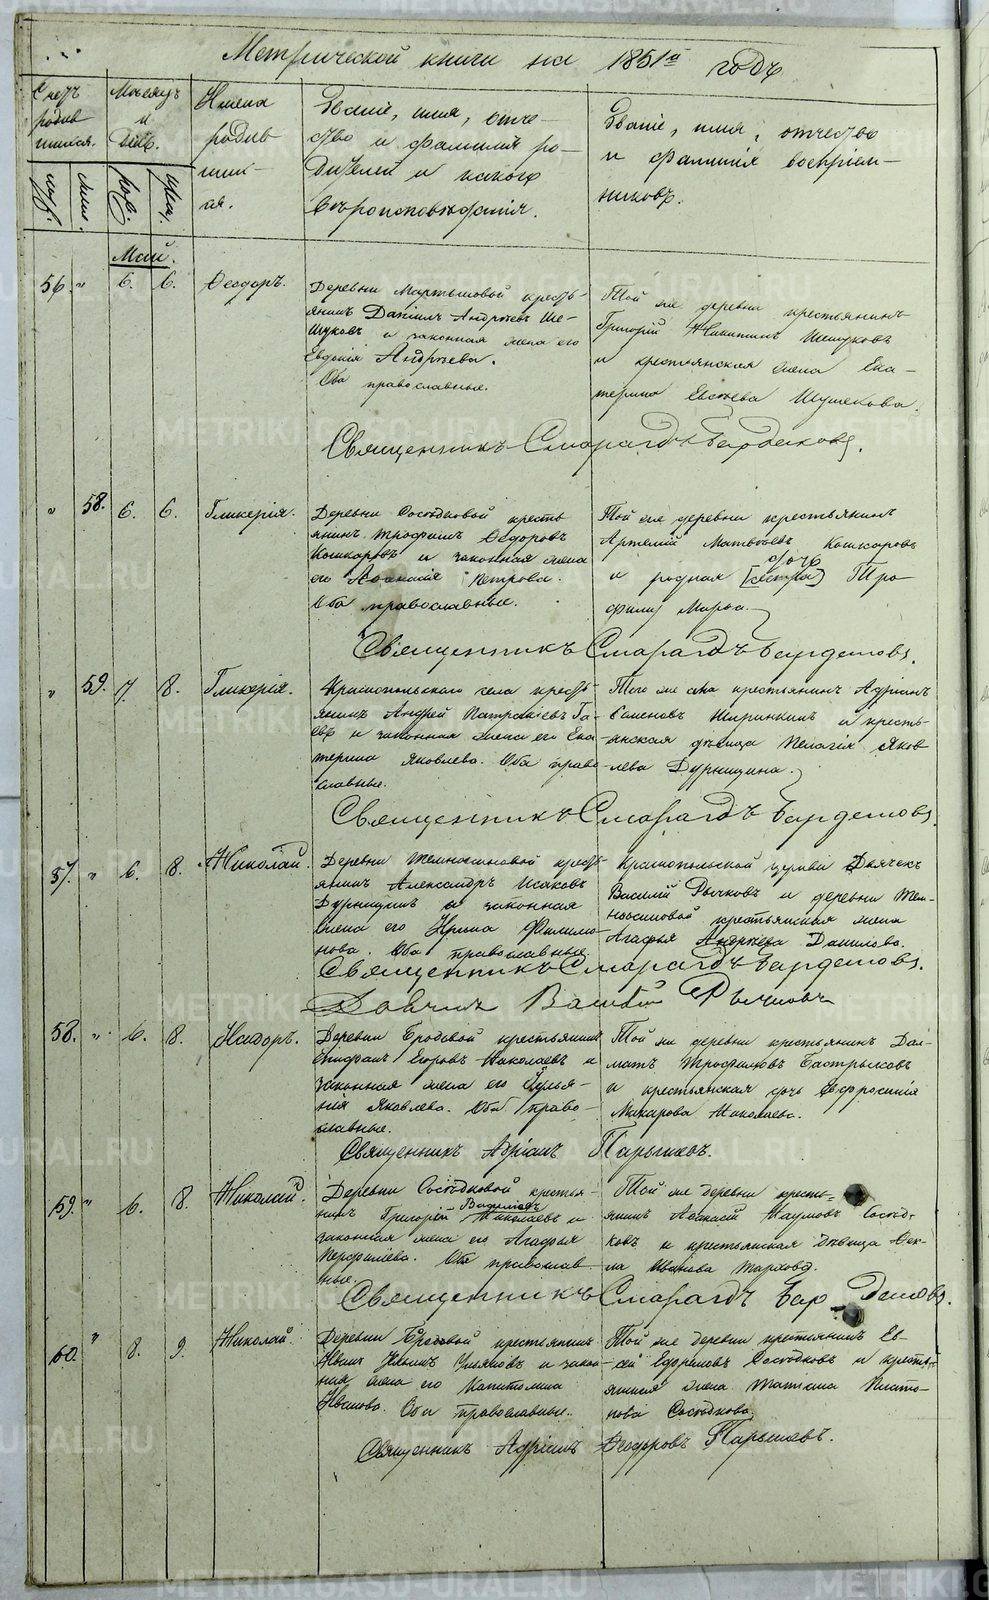 Метрической книги на 1851й годъ
Счетъ родив шихся.
Месяцъ и день.
Имена родив шихся.
Званіе, имя, отче-
ство и фамилія ро-
дителей и какого
вероисповеданія.
Званіе, имя, отчество
и фамилія воспріем-
никовъ.
муж.
жен.
рож.
крещ.
Май.
56. " 6. 6. Ѳеодоръ.
Деревни Мартыновой кресть-
янинъ Даніилъ Андреевъ Ше-
шуковъ и законная жена его
Евдокія Андреева.
Оба православные.
Той же деревни крестьянинъ
Григорій Никитинъ Шешуковъ
и крестьянская жена Ека-
терина
Священникъ Смарагдъ
" 58. 6. 6. Гликерія.
Деревни Соседковой кресть
янинъ Трофимъ Ѳедоровъ
Кошкаровъ и законная жена
его Афанасія Петрова.
Оба православные.
Той же деревни крестьянинъ
Артемій Матвеевъ Кошкаровъ
дочь
и родная [сестра] Тро
фима Марѳа.
Священникъ Смарагдъ
" 59. 7. 8. Гликерія.
Краснопольскаго села кресть-
янинъ Андрей Патракіевъ Га-
евъ и законная жена его Ека
терина Яковлева. Оба право
славные.
Того же села крестьянинъ Адріанъ
Семеновъ Ширинкинъ и кресть-
янская девица Пелагія Яков
лева Дурницина.
Священникъ Смарагдъ
57. " 6. 8. Николай.
Деревни Темноосиновой кресть
янинъ Александръ Исаковъ
Дурницинъ и законная
жена его Ирина Филимо
нова. Оба православные.
Краснопольской церкви Дьячекъ
Василій Рычковъ и деревни Тем-
ноосиновой крестьянская жена
Агафья Андреева Данилова.
Священникъ Смарагдъ
Дьячекъ Василій Рычковъ
58. " 6. 8. Исидоръ.
Деревни Бродовой крестьянинъ
Епифанъ Егоровъ Николаевъ и
законная жена его Улья-
нія Яковлева. Оба право-
славные.
Той же деревни крестьянинъ Дал-
матъ Трофимовъ Бастрыковъ
и крестьянская дочь Евфросинія
Макарова Николаева.
Священникъ Адріанъ Парышевъ.
59. " 6. 8. Николай.
Деревни Соседковой крестья-
Вавиловъ
нинъ Григорій Николаевъ и
законная жена его Агафья
Перфилева. Оба православ-
ные.
Той же деревни кресть-
янинъ Афанасій Наумовъ Сосед-
ковъ и крестьянская девица Ѳек-
ла Иванова
Священникъ Смарагдъ
60. " 8. 9. Николай.
Деревни Бродовой крестьянинъ
Иванъ и закон
ная жена его Капитолина
Иванова. Оба православные.
Той же деревни крестьянинъ Ев-
сей Ефремовъ Соседковъ и кресть-
янская жена Татіана Плато-
нова Соседкова.
Священникъ Адріанъ Ѳеодоровъ Парышевъ.
METRIKI.GASO-URAL.RU